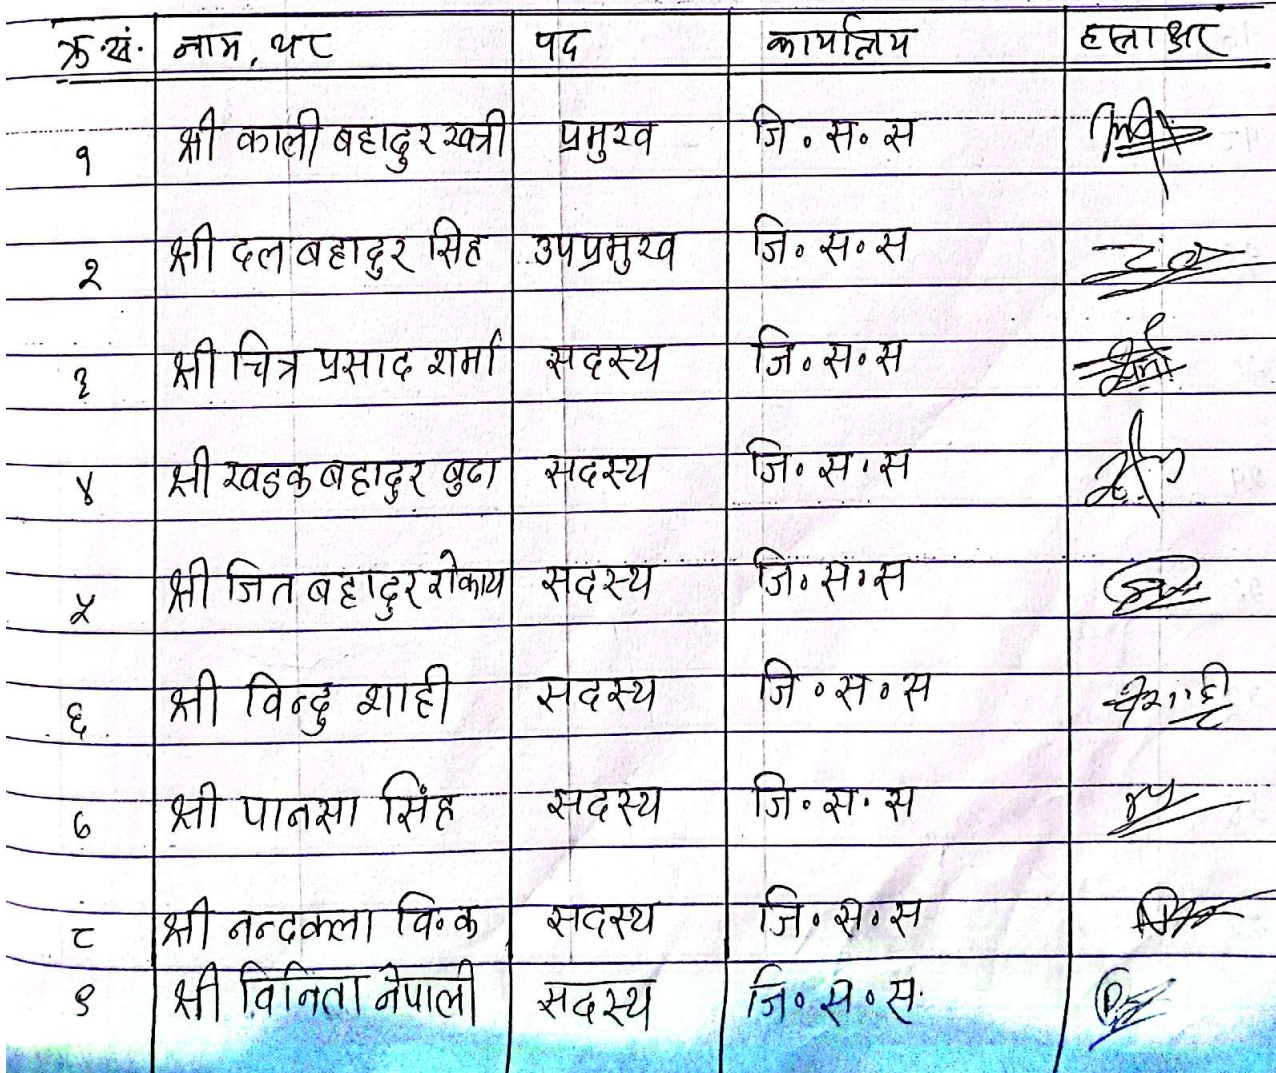 क्र.सं. नाम, थर पद कार्यालय हस्ताक्षर
१ श्री काली बहादुर खत्री प्रमुख जि॰स॰स
२ श्री दल बहादुर सिंह उपप्रमुख जि॰स॰स
३ श्री चित्र प्रसाद शर्मा सदस्य जि॰स॰स
४ श्री खडक बहादुर बुढा सदस्य जि॰स॰स
५ श्री जित बहादुर रोकाय सदस्य जि॰स॰स
६ श्री विन्दु शाही सदस्य जि॰स॰स
७ श्री पानसा सिंह सदस्य जि॰स॰स
८ श्री नन्दकला वि॰क सदस्य जि॰स॰स
९ श्री विनिता नेपाली सदस्य जि॰स॰स.